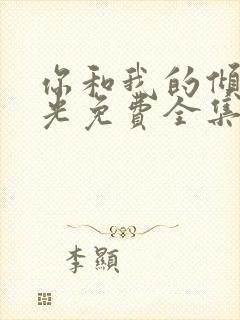 你和我的傾
光免費全集
李顯